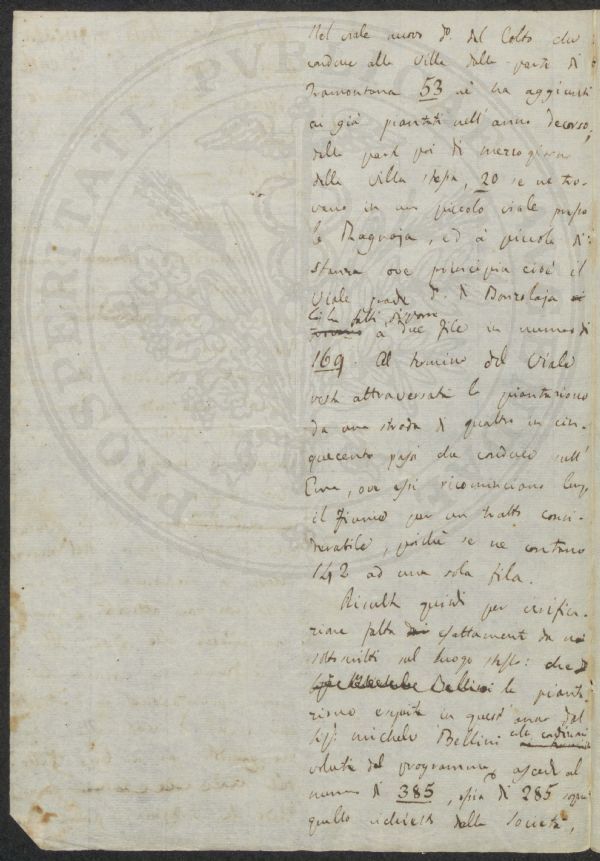 Nel viale nuovo d.º del Colto che
conduce alla Villa dalla parte di
tramontana 53 ne ha aggiunti
ai già piantati nell' anno decorso,
dalla parte poi di mezzogiorno
della Villa stessa, 20 se ne tro-
vano in un piccolo viale presso
la Ragnaja, ed a piccola di-
stanza ove principia cioè il
Viale grande d.º di
a due file in numero di
169. Al termine del Viale
resta attraversata la piantazione
da una strada di quattro in cin-
quecento passi che conduce sull'
Era, ove essi ricominciano lungo
il fiume per un tratto consi-
derabile, poiché se ne contano
142 ad una sola fila.
Risulta quindi per verifica-
zione fatta esattamente da noi
sottoscritti sul luogo stesso: che
Bellini le pianta-
zioni eseguite in quest' anno dal
Sig.r Michele Bellini
volute dal programma, ascende al
numero di 385, ossia di 285 sopra
quello richiesto dalla Società,
PROSPERITATI PVBLICAE